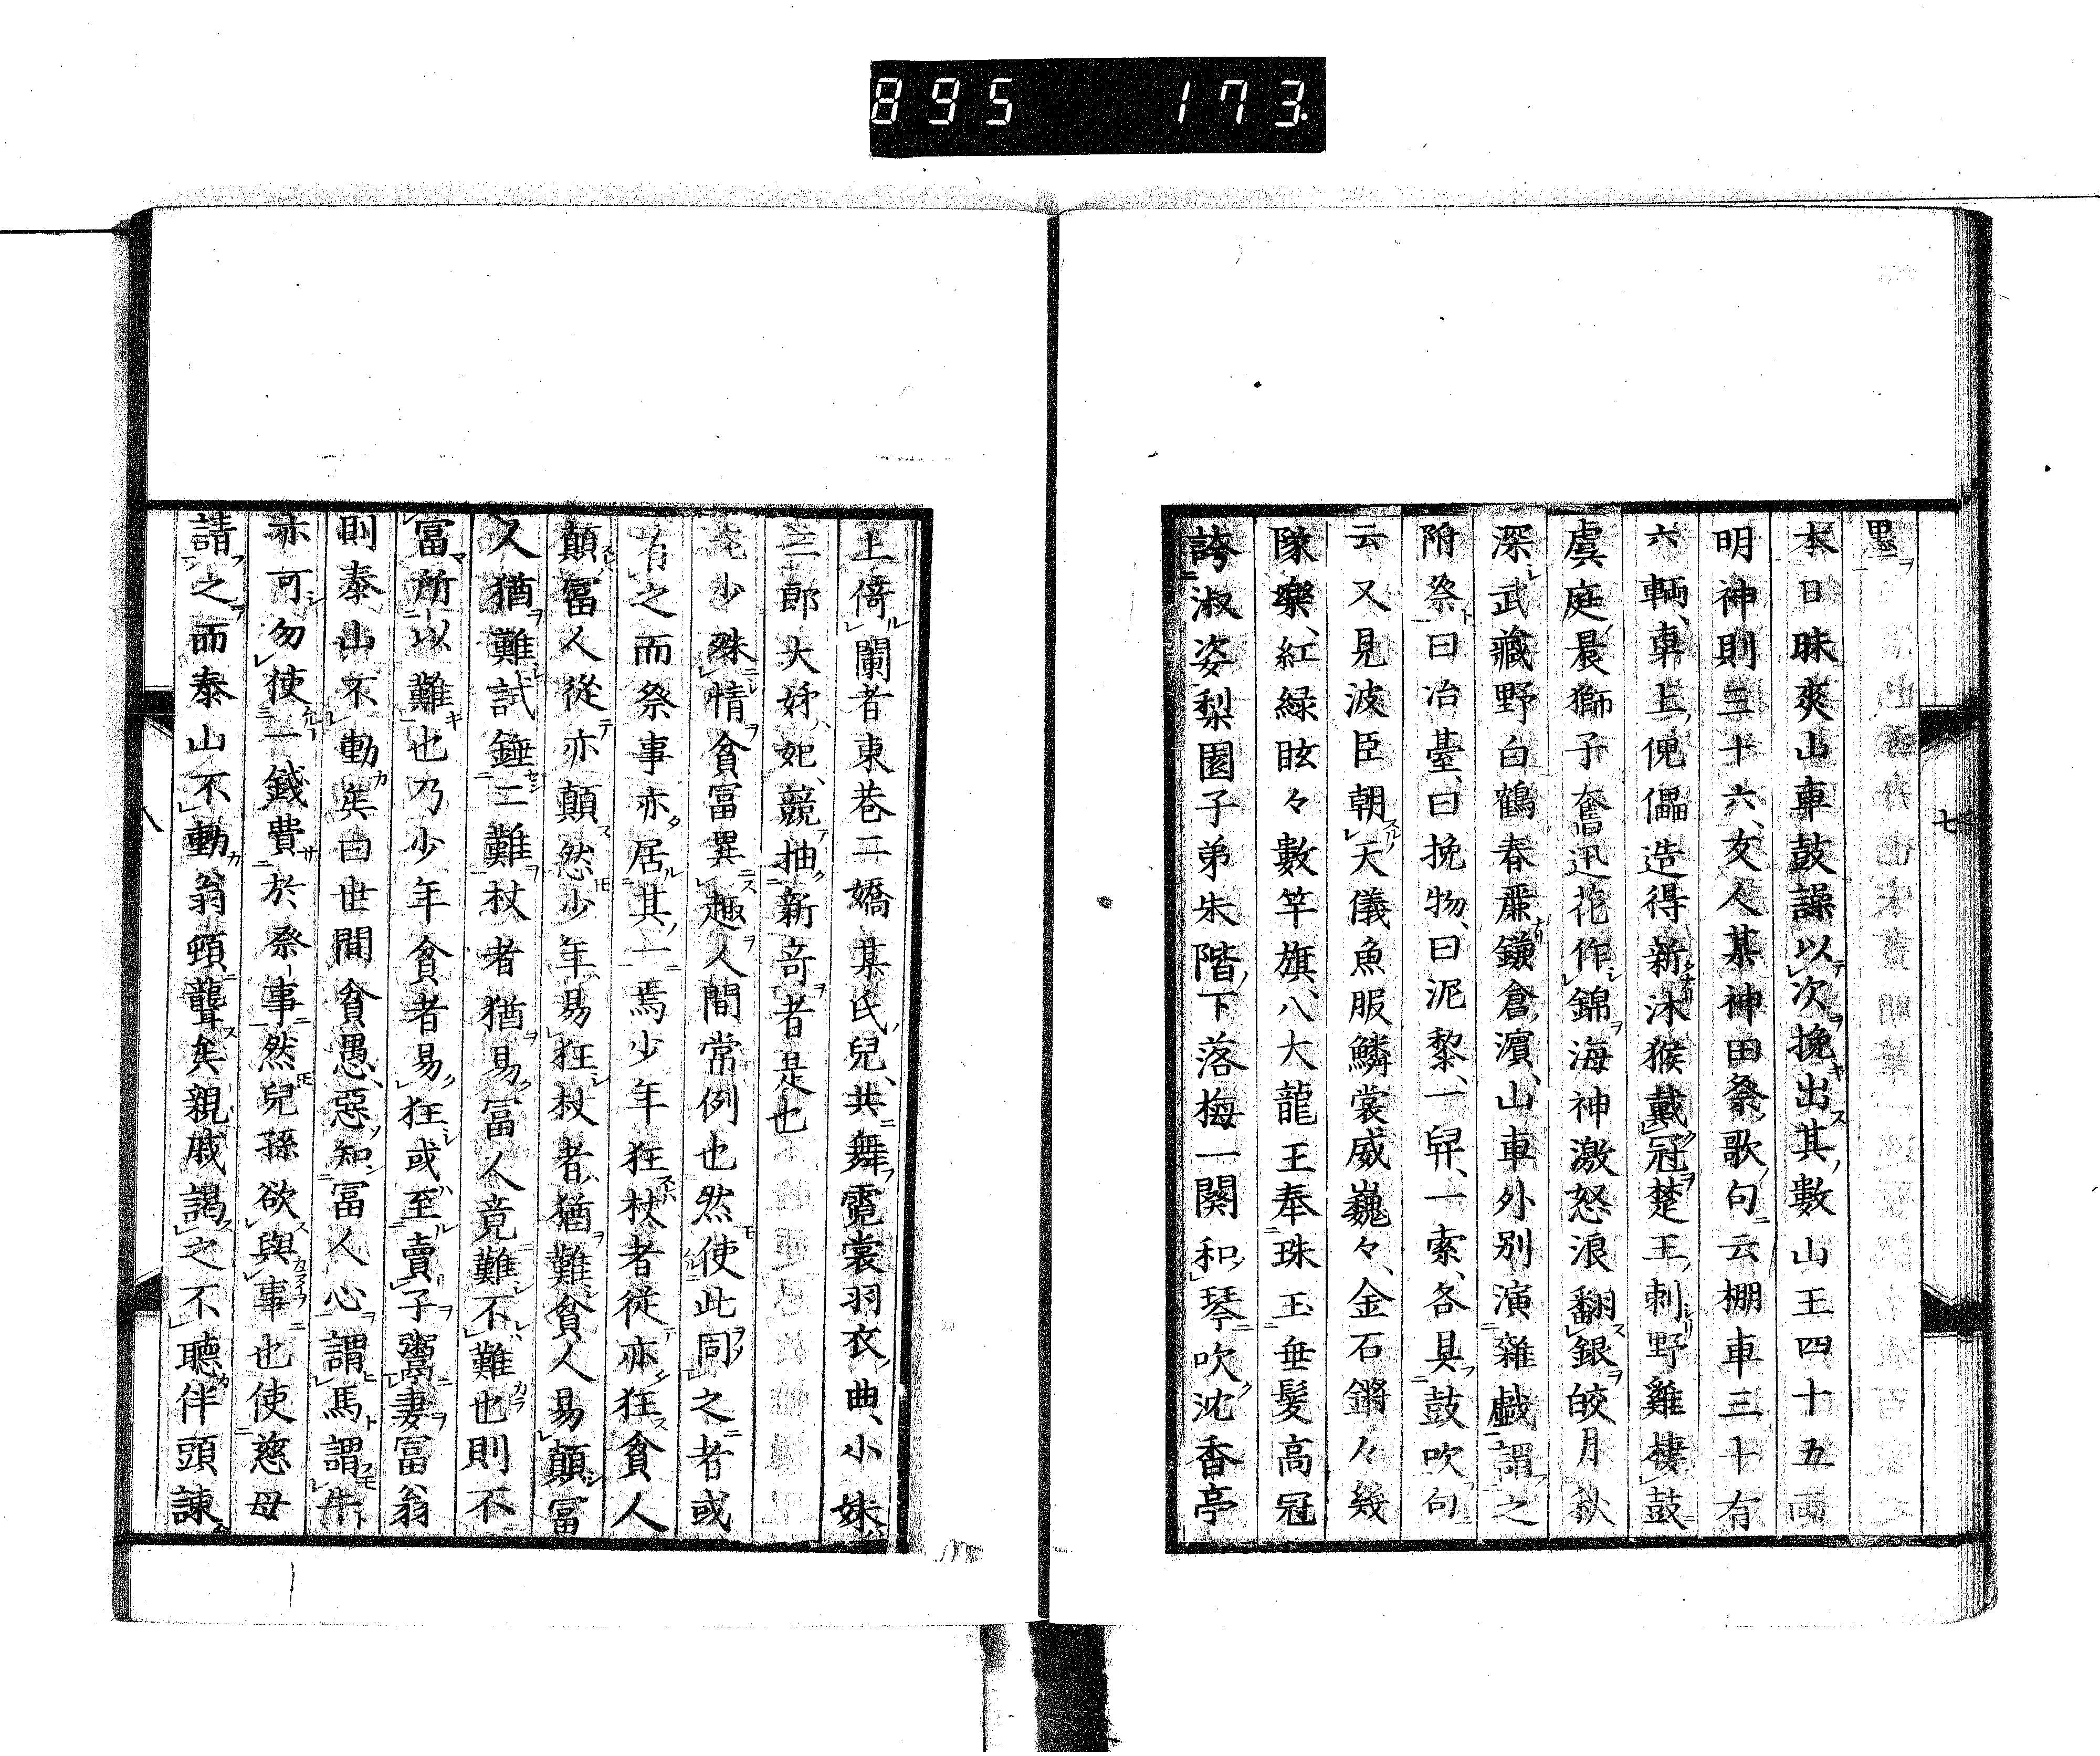 895 173
墨
本日昧爽山車鼓譟以次挽出其數山王四十五両
明神則三十六、友人某神田祭歌句云棚車三十有
六輌、車上傀儡造得新沐猴戴冠楚王刺野雞棲鼓
虞庭晨獅子奮迅花作錦海神激怒浪翻銀皎月秋
深武藏野白鶴春麗鎌倉濵、山車外別演雜戯謂之
附祭曰冶臺、曰挽物、曰泥黎、一舁、一索、各具鼓吹句
云又見波臣朝天儀魚服鱗裳威巍々、金石鏘々幾
隊樂、紅緑眩々數竿旗、八大龍王奉珠玉垂髮高冠
誇淑姿梨園子弟朱階下落梅一闋和琴吹沈香亭
七
上倚闌者東巷二嬌某氏兒、共舞霓裳羽衣曲、小妹
三郎大姊妃、競抽新竒者是也
老少殊情貧冨異趣人間常例也然使此同之者或
有之而祭事亦居其一焉少年狂杖者從亦狂貧人
顛冨人從亦顛然少年易狂杖者猶難貧人易顛冨
人猶難試錘二難杖者猶易冨人竟難不難也則不
冨所以難也乃少年貧者易狂或至賣子鬻妻冨翁
則泰山不動矣曰世間貧愚、惡知冨人心謂馬謂牛
亦可勿使一錢費於祭事然兒孫欲與事也使慈母
請之而泰山不動翁頓聾矣親戚謁之不聽伴頭諫
八